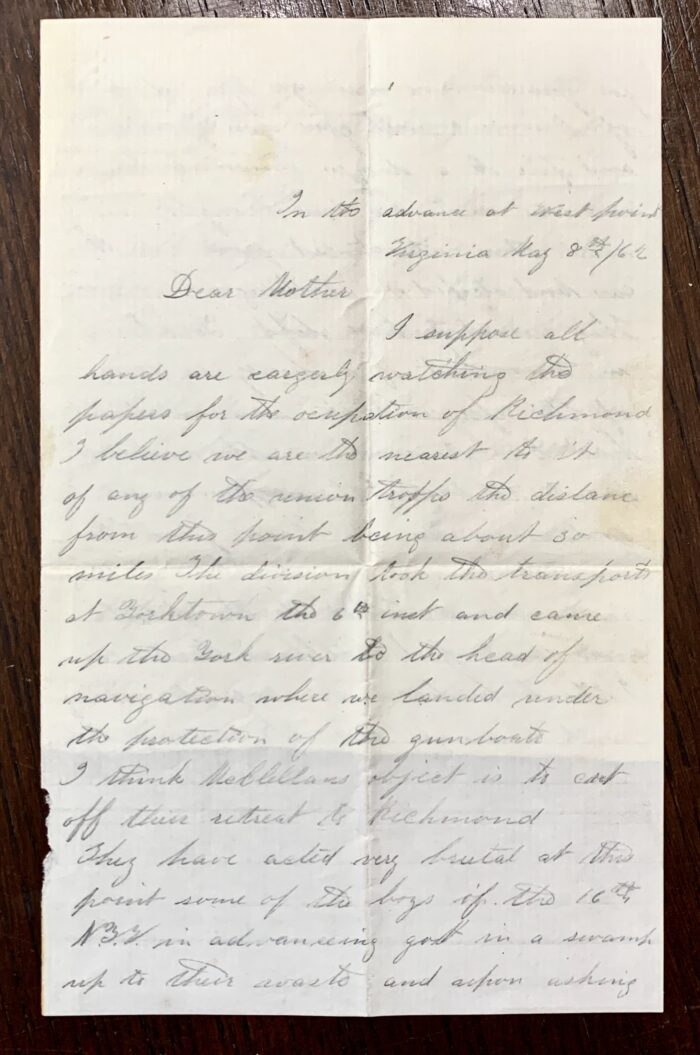 In the advance at West point
Virginia May 8th/62
Dear Mother
I suppose all
hands are eargerly watching the
papers for the ocupation of Richmond
I believe we are the nearest to it
of any of the union tropps the distance
from this point being about 30
miles The division took the transports
at Yorktown the 6th inst and came
up the York river to the head of
navigation where we landed under
the protection of the gunboats
I think McClellans object is to cut
off their retreat to Richmond
They have acted very brutal at this
point some of the boys of the 16th
N.Y.V. in advanceing got in a swamp
up to their waists and upon asking